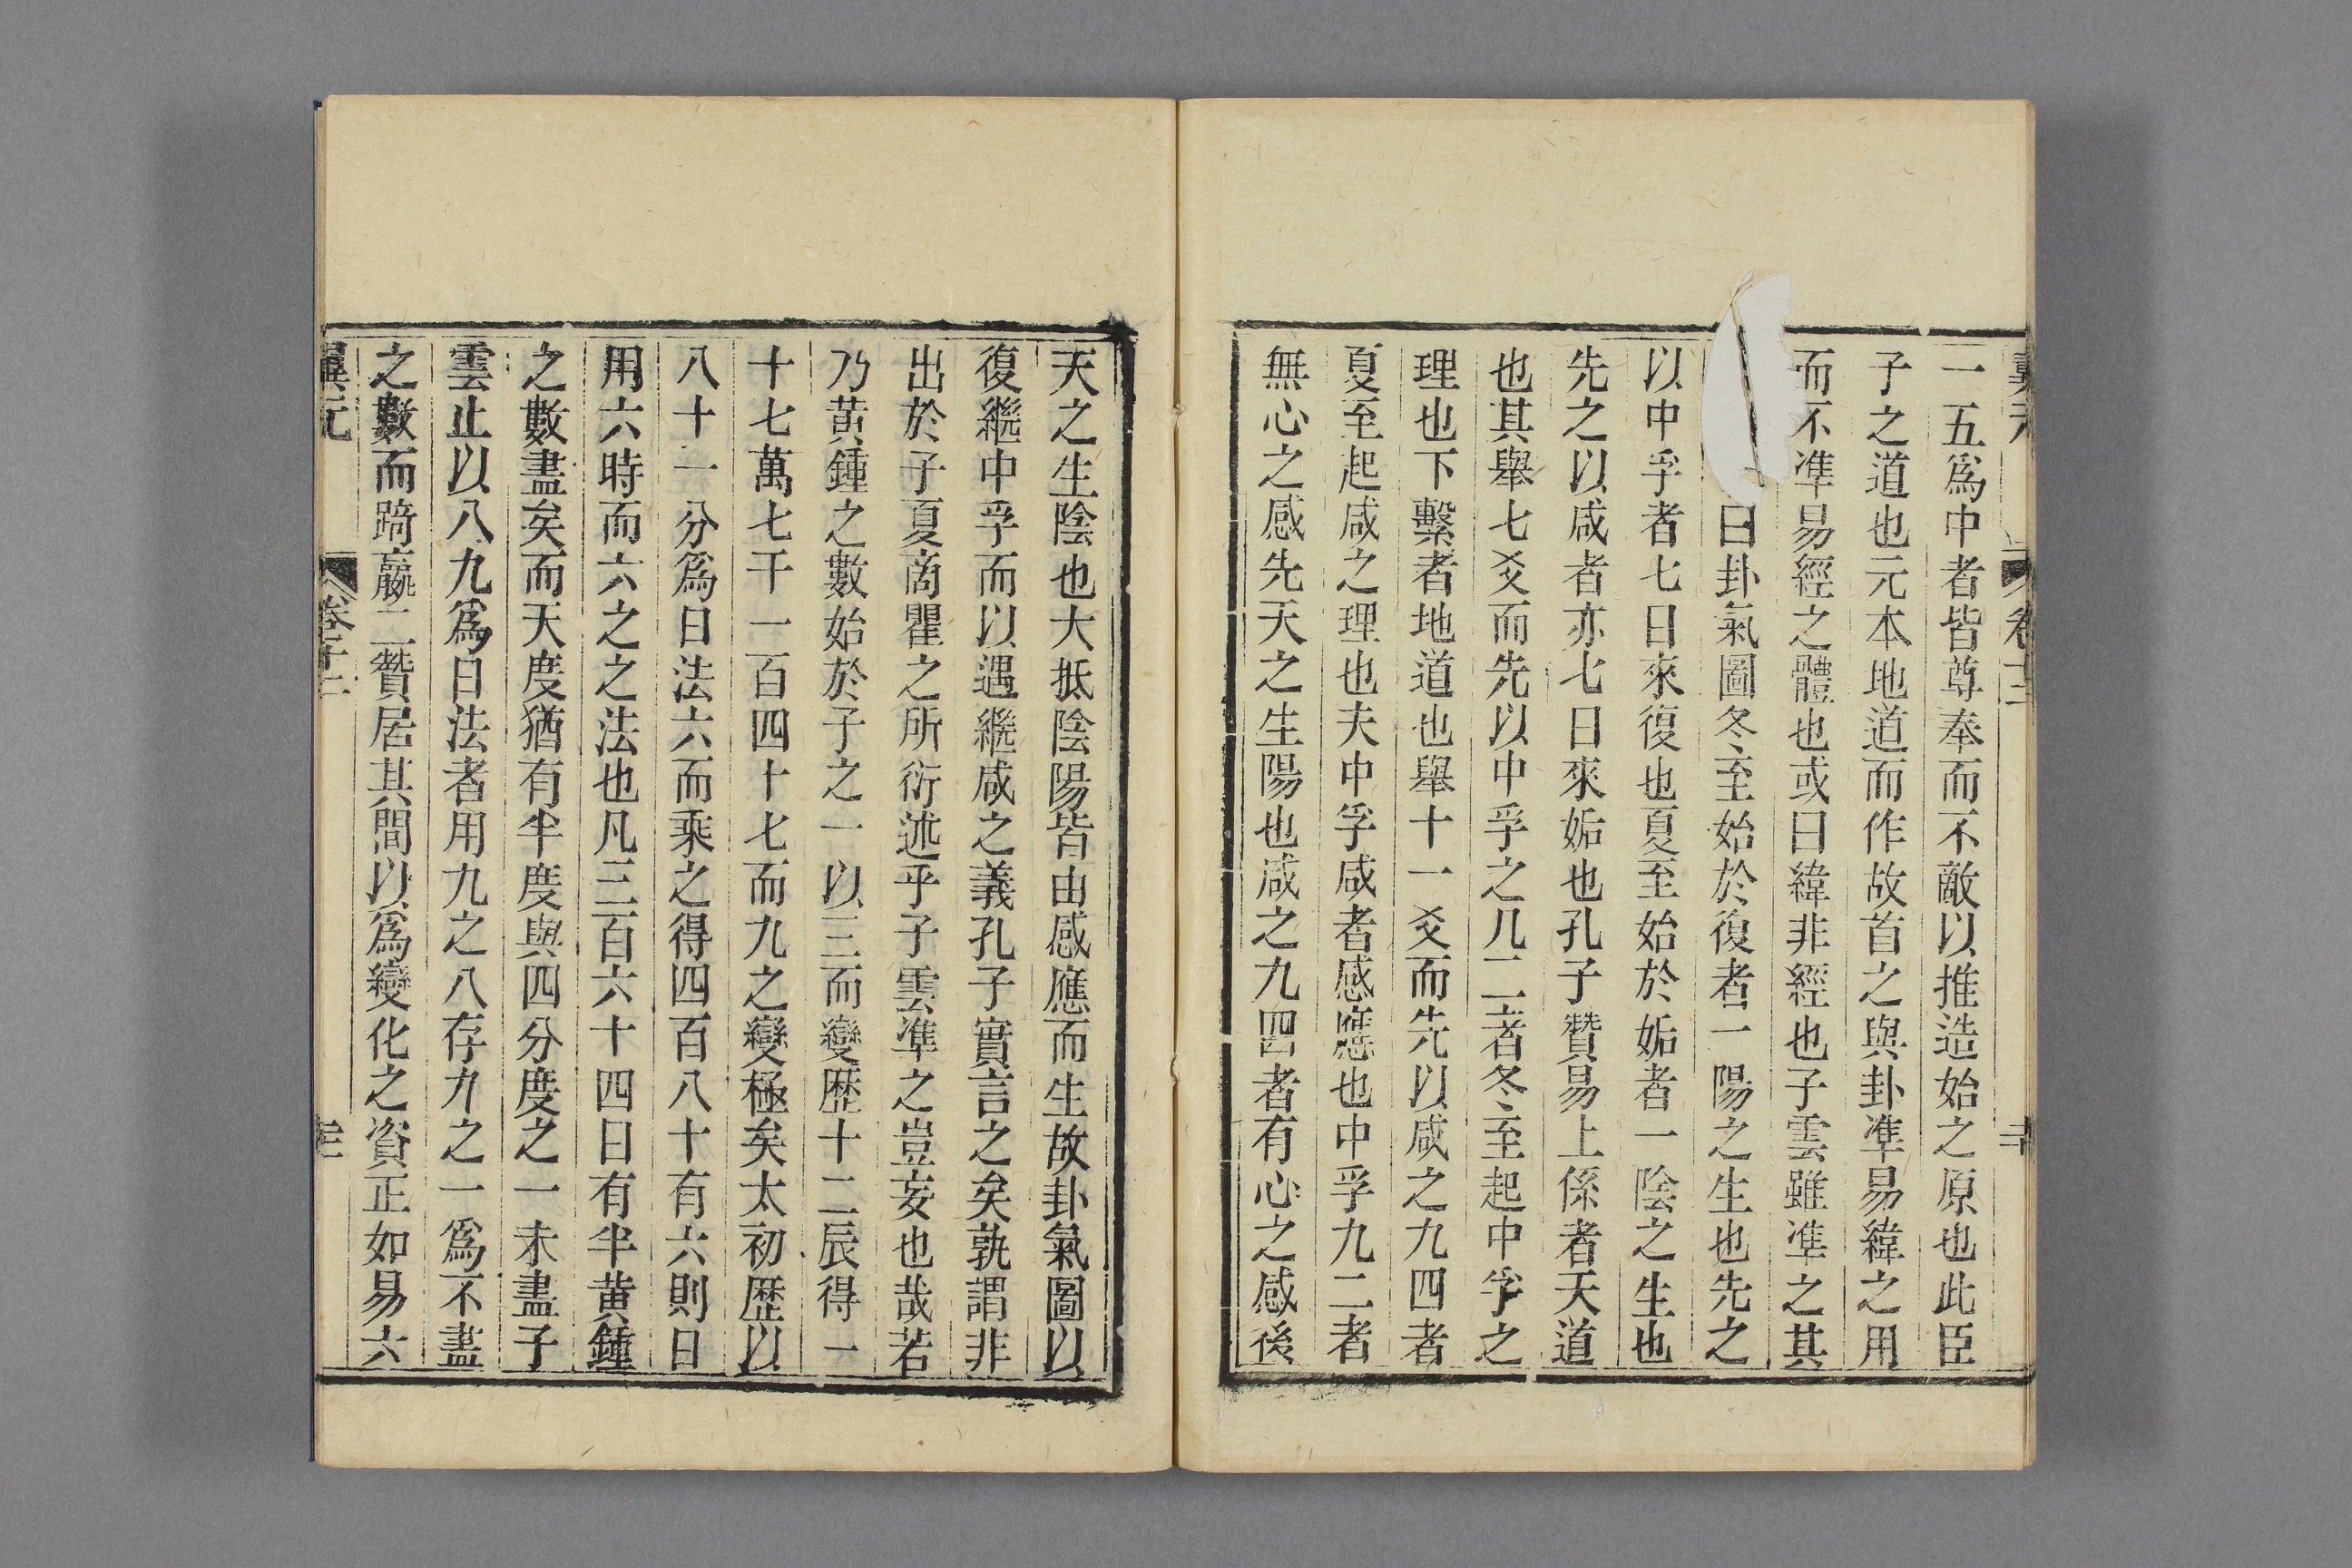 一五爲中者皆尊奉而不敵以推造始之原也此臣
子之道也元本地道而作故首之與卦準易緯之用
而不準易經之體也或曰緯非經也子雲雖準之其
曰卦氣圖冬至始於復者一陽之生也先之
以中孚者七日來復也夏至始於姤者一陰之生也
先之以咸者亦七日來姤也孔子贊易上係者天道
也其舉七爻而先以中孚之九二者冬至起中孚之
理也下繫者地道也舉十一爻而先以咸之九四者
夏至起咸之理也夫中孚咸者感應也中孚九二者
無心之感先天之生陽也咸之九四者有心之感後
天之生陰也大抵陰陽皆由感應而生故卦氣圖以
復繼中孚而以遇繼咸之義孔子實言之矣孰謂非
出於子夏商瞿之所衍述乎子雲準之豈妄也哉若
乃黃鍾之數始於子之一以三而變歷十二辰得一
十七萬七千一百四十七而九之變極矣太初歷以
八十一分爲日法六而乘之得四百八十有六則日
用六時而六之之法也凡三百六十四日有半黃鍾
之數盡矣而天度猶有半度與四分度之一未盡子
雲止以八九爲日法者用九之八存九之一爲不盡
之數而踦嬴二贊居其間以爲變化之資正如易六
翼元 卷十二